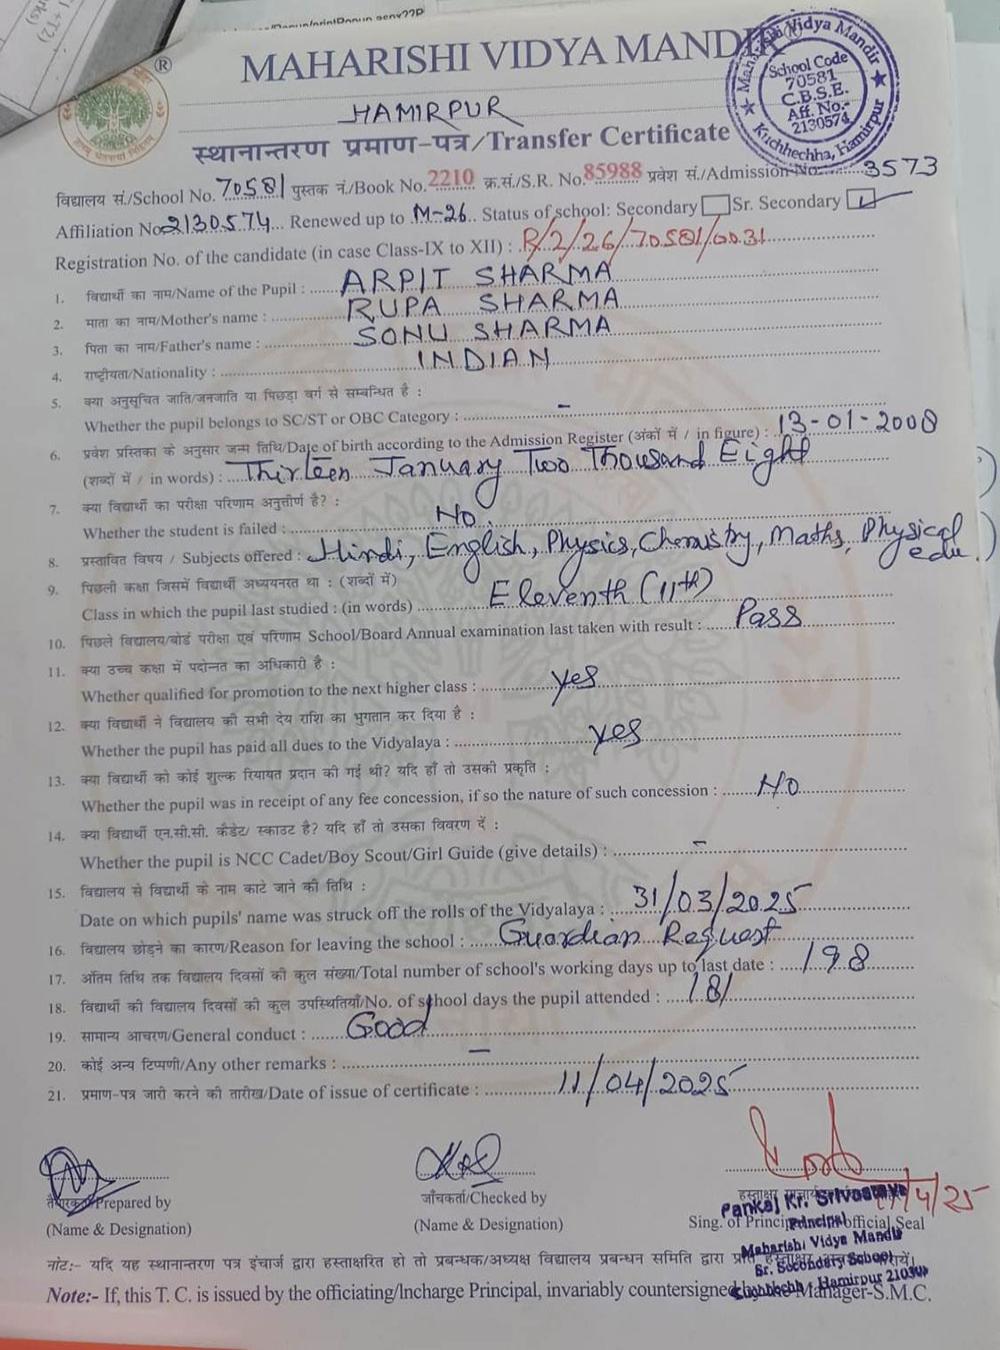 MAHARISHI VIDYA MANDIR
HAMIRPUR
स्थानान्तरण प्रमाण-पत्र/Transfer Certificate
Maharishi Vidya Mandir
School Code
70581
C.B.S.E.
Aff. No.-
2130574
Kuchhechha, Hamirpur
विद्यालय सं./School No. 70581 पुस्तक नं/Book No. 2210 क्र.सं./S.R. No. 85988 प्रवेश सं./Admission No. 3573
Affiliation No. 2130574 Renewed up to M-26 Status of school: Secondary Sr. Secondary
Registration No. of the candidate (in case Class-IX to XII) : R/2/26/70581/0031
1. विद्यार्थी का नाम/Name of the Pupil : ARPIT SHARMA
2. माता का नाम/Mother's name : RUPA SHARMA
3. पिता का नाम/Father's name : SONU SHARMA
4. राष्ट्रीयता/Nationality : INDIAN
5. क्या अनुसूचित जाति/जनजाति या पिछड़ा वर्ग से सम्बन्धित है :
Whether the pupil belongs to SC/ST or OBC Category : -
6. प्रवेश प्रस्तिका के अनुसार जन्म तिथि/Date of birth according to the Admission Register (अंकों में / in figure) : 13-01-2008
(शब्दों में / in words) : Thirteen January Two Thousand Eight
7. क्या विद्यार्थी का परीक्षा परिणाम अनुत्तीर्ण है? :
Whether the student is failed : No
8. प्रस्तावित विषय / Subjects offered : Hindi, English, Physics, Chemistry, Maths, Physical edu.
9. पिछली कक्षा जिसमें विद्यार्थी अध्ययनरत था : (शब्दों में)
Class in which the pupil last studied : (in words) Eleventh (11th)
10. पिछले विद्यालय/बोर्ड परीक्षा एवं परिणाम School/Board Annual examination last taken with result : Pass
11. क्या उच्च कक्षा में पदोन्नत का अधिकारी है :
Whether qualified for promotion to the next higher class : yes
12. क्या विद्यार्थी ने विद्यालय की सभी देय राशि का भुगतान कर दिया है :
Whether the pupil has paid all dues to the Vidyalaya : yes
13. क्या विद्यार्थी को कोई शुल्क रियायत प्रदान की गई थी? यदि हाँ तो उसकी प्रकृति :
Whether the pupil was in receipt of any fee concession, if so the nature of such concession : No
14. क्या विद्यार्थी एन.सी.सी. कैडेट/ स्काउट है? यदि हाँ तो उसका विवरण दें :
Whether the pupil is NCC Cadet/Boy Scout/Girl Guide (give details) : -
15. विद्यालय से विद्यार्थी के नाम काटे जाने की तिथि :
Date on which pupils' name was struck off the rolls of the Vidyalaya : 31/03/2025
16. विद्यालय छोड़ने का कारण/Reason for leaving the school : Guardian Request
17. अंतिम तिथि तक विद्यालय दिवसों की कुल संख्या/Total number of school's working days up to last date : 198
18. विद्यार्थी की विद्यालय दिवसों की कुल उपस्थितियाँ/No. of school days the pupil attended : 181
19. सामान्य आचरण/General conduct : Good
20. कोई अन्य टिप्पणी/Any other remarks : -
21. प्रमाण-पत्र जारी करने की तारीख/Date of issue of certificate : 11/04/2025
Prepared by
(Name & Designation)
जाँचकर्ता/Checked by
(Name & Designation)
Sing. of Principal official Seal
Pankaj Kr. Srivastava
Principal
Maharishi Vidya Mandir
Sr. Secondary School
Kuchhechha, Hamirpur
नोट:- यदि यह स्थानान्तरण पत्र इंचार्ज द्वारा हस्ताक्षरित हो तो प्रबन्धक/अध्यक्ष विद्यालय प्रबन्धन समिति द्वारा
Note:- If, this T. C. is issued by the officiating/Incharge Principal, invariably countersigned by the Manager-S.M.C.